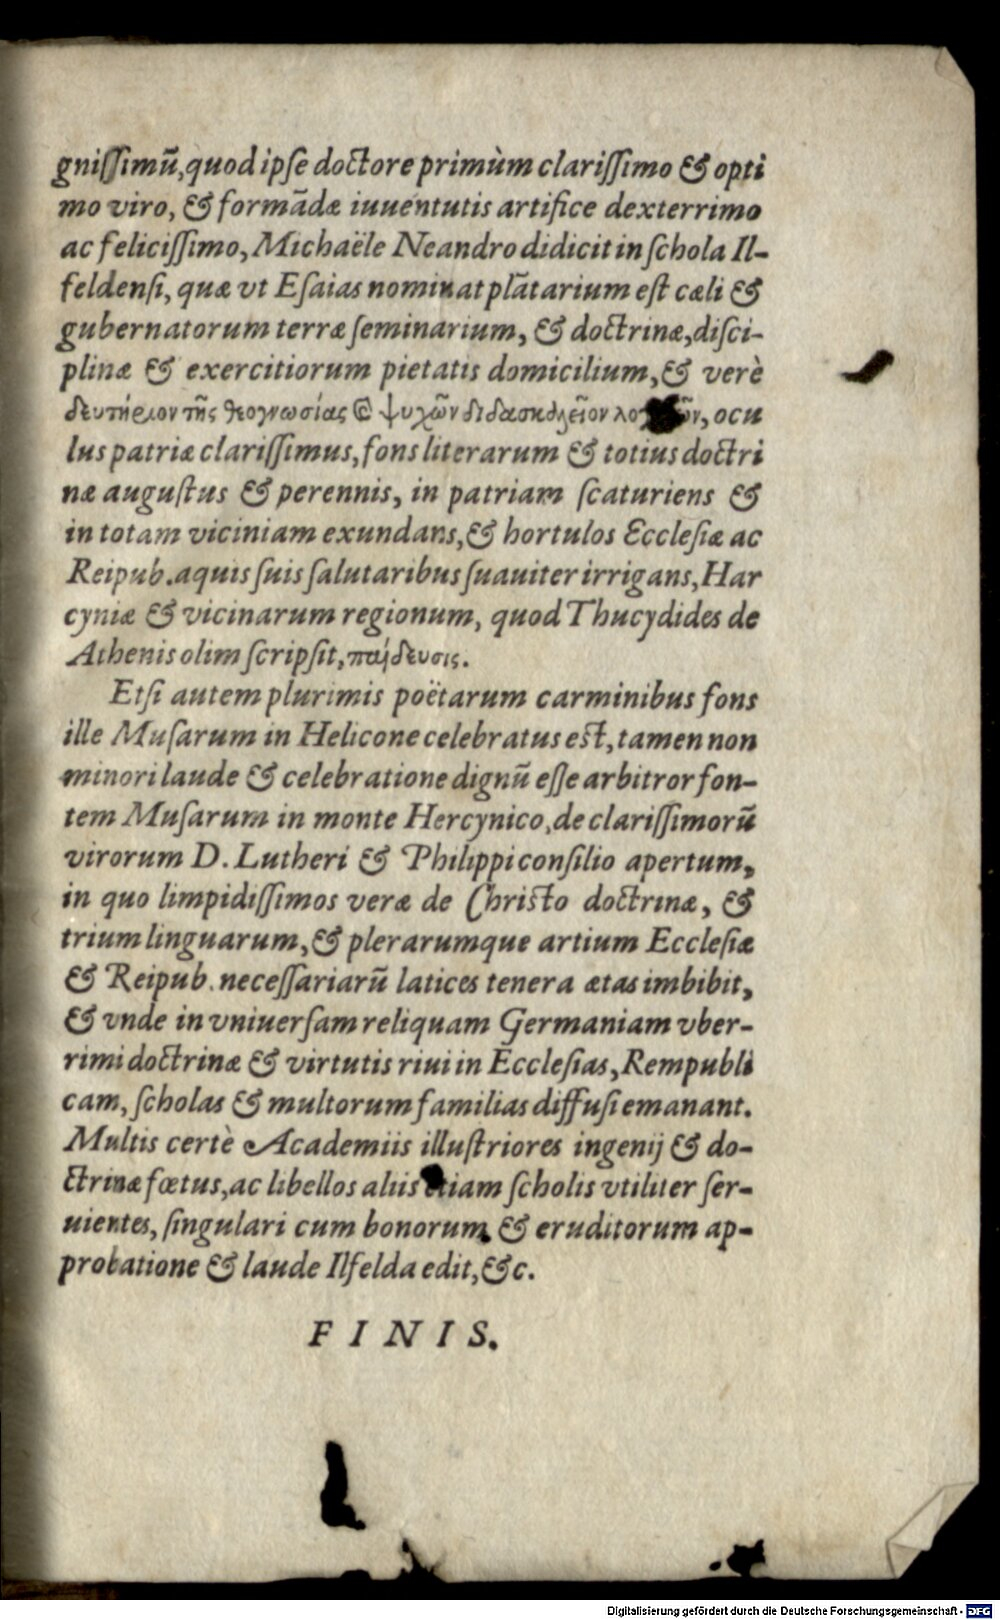 gniſſimū, quod ipſe doctore primùm clariſſimo & opti
mo viro, & formādæ iuuentutis artifice dexterrimo
ac feliciſſimo, Michaële Neandro didicit in ſchola Il-
feldenſi, quæ vt Eſaias nominat plātarium eſt cæli &
gubernatorum terræ ſeminarium, & doctrinæ, diſci-
plinæ & exercitiorum pietatis domicilium, & verè
τῆς θεογνωσίας ψυχῶν ocu
lus patriæ clariſſimus, fons literarum & totius doctri
næ auguſtus & perennis, in patriam ſcaturiens &
in totam viciniam exundans, & hortulos Eccleſiæ ac
Reipub. aquis ſuis ſalutaribus ſuauiter irrigans, Har
cyniæ & vicinarum regionum, quod Thucydides de
Athenis olim ſcripſit, παίδευσις.
Etſi autem plurimis poëtarum carminibus fons
ille Muſarum in Helicone celebratus eſt, tamen non
minori laude & celebratione dignū eſſe arbitror fon-
tem Muſarum in monte Hercynico, de clariſſimorū
virorum D. Lutheri & Philippi conſilio apertum,
in quo limpidiſſimos veræ de Chriſto doctrinæ, &
trium linguarum, & plerarumque artium Eccleſiæ
& Reipub. neceſſariarū latices tenera ætas imbibit,
& vnde in vniuerſam reliquam Germaniam vber-
rimi doctrinæ & virtutis riui in Eccleſias, Rempubli
cam, ſcholas & multorum familias diffuſi emanant.
Multis certè Academiis illuſtriores ingenij & do-
ctrinæ fœtus, ac libellos aliis etiam ſcholis vtiliter ſer-
uientes, ſingulari cum bonorum & eruditorum ap-
probatione & laude Ilfelda edit, &c.
FINIS.
Digitalisierung gefördert durch die Deutsche Forschungsgemeinschaft - DFG